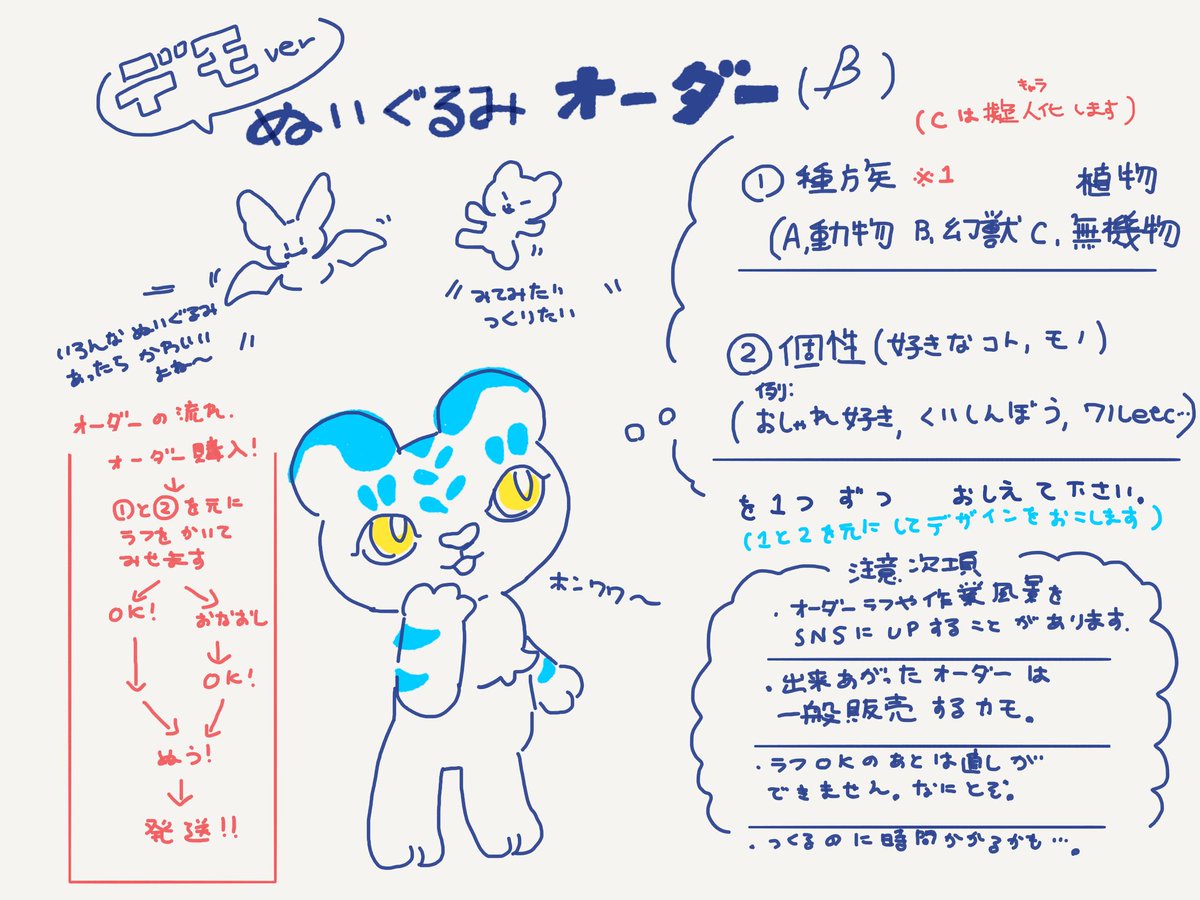 デモver
ぬいぐるみ オーダー(β)
いろんなぬいぐるみ
あったら かわいい
よね〜
みてみたい
つくりたい
キャラ
(Cは擬人化します)
① 種族 ※1 植物
(A,動物 B,幻獣 C,無機物
② 個性(好きなコト,モノ)
例:
(おしゃれ好き, くいしんぼう, ワルetc…)
を1つずつ おしえて下さい。
(1と2を元にしてデザインをおこします)
オーダーの流れ.
オーダー購入!
↓
①と②を元に
ラフをかいて
みせます
OK! おなおし
OK!
ぬう!
↓
発送!!
ホンワワ〜
注意次項
・オーダーラフや作業風景を
SNSにUPすることがあります.
・出来あがったオーダーは
一般販売するカモ。
・ラフOKのあとは直しが
できません。なにとぞ。
・つくるのに時間かかるかも…。